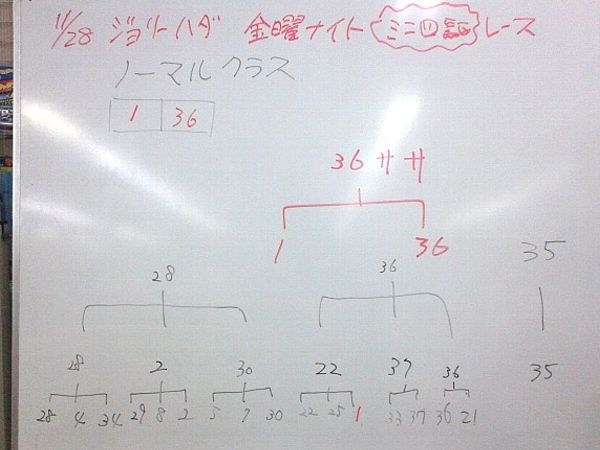 11/28 ジョリーハダ 金曜ナイト ミニ四駆 レース
ノーマルクラス
1 36
36 サ サ
1 36 35
28 36
28 2 30 22 37 36 35
28 4 34 29 8 2 5 7 30 22 25 1 33 37 36 21